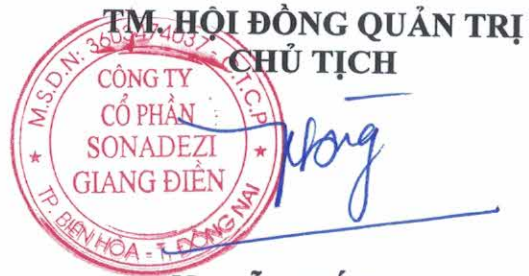 TM. HỘI ĐỒNG QUẢN TRỊ
CHỦ TỊCH
CÔNG TY
CỔ PHẦN
SONADEZI
GIANG ĐIỀN
TP. BIÊN HÒA - T. ĐỒNG NAI